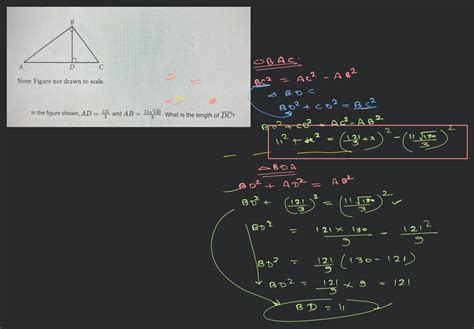 B
A D C
Note: Figure not drawn to scale.
In the figure shown, AD = 121/3 and AB = 11√130/3. What is the length of DC?
△BAC
BC² = AC² - AB²
△ BDC
BD² + CD² = BC²
BD² + CD² = AC² - AB²
11² + x² = (121/3 + x)² - (11√130/3)²
△BDA
BD² + AD² = AB²
BD² + (121/3)² = (11√130/3)²
BD² = 121 × 130/9 - 121²/9
BD² = 121/9 (130 - 121)
BD² = 121/9 × 9 = 121
BD = 11